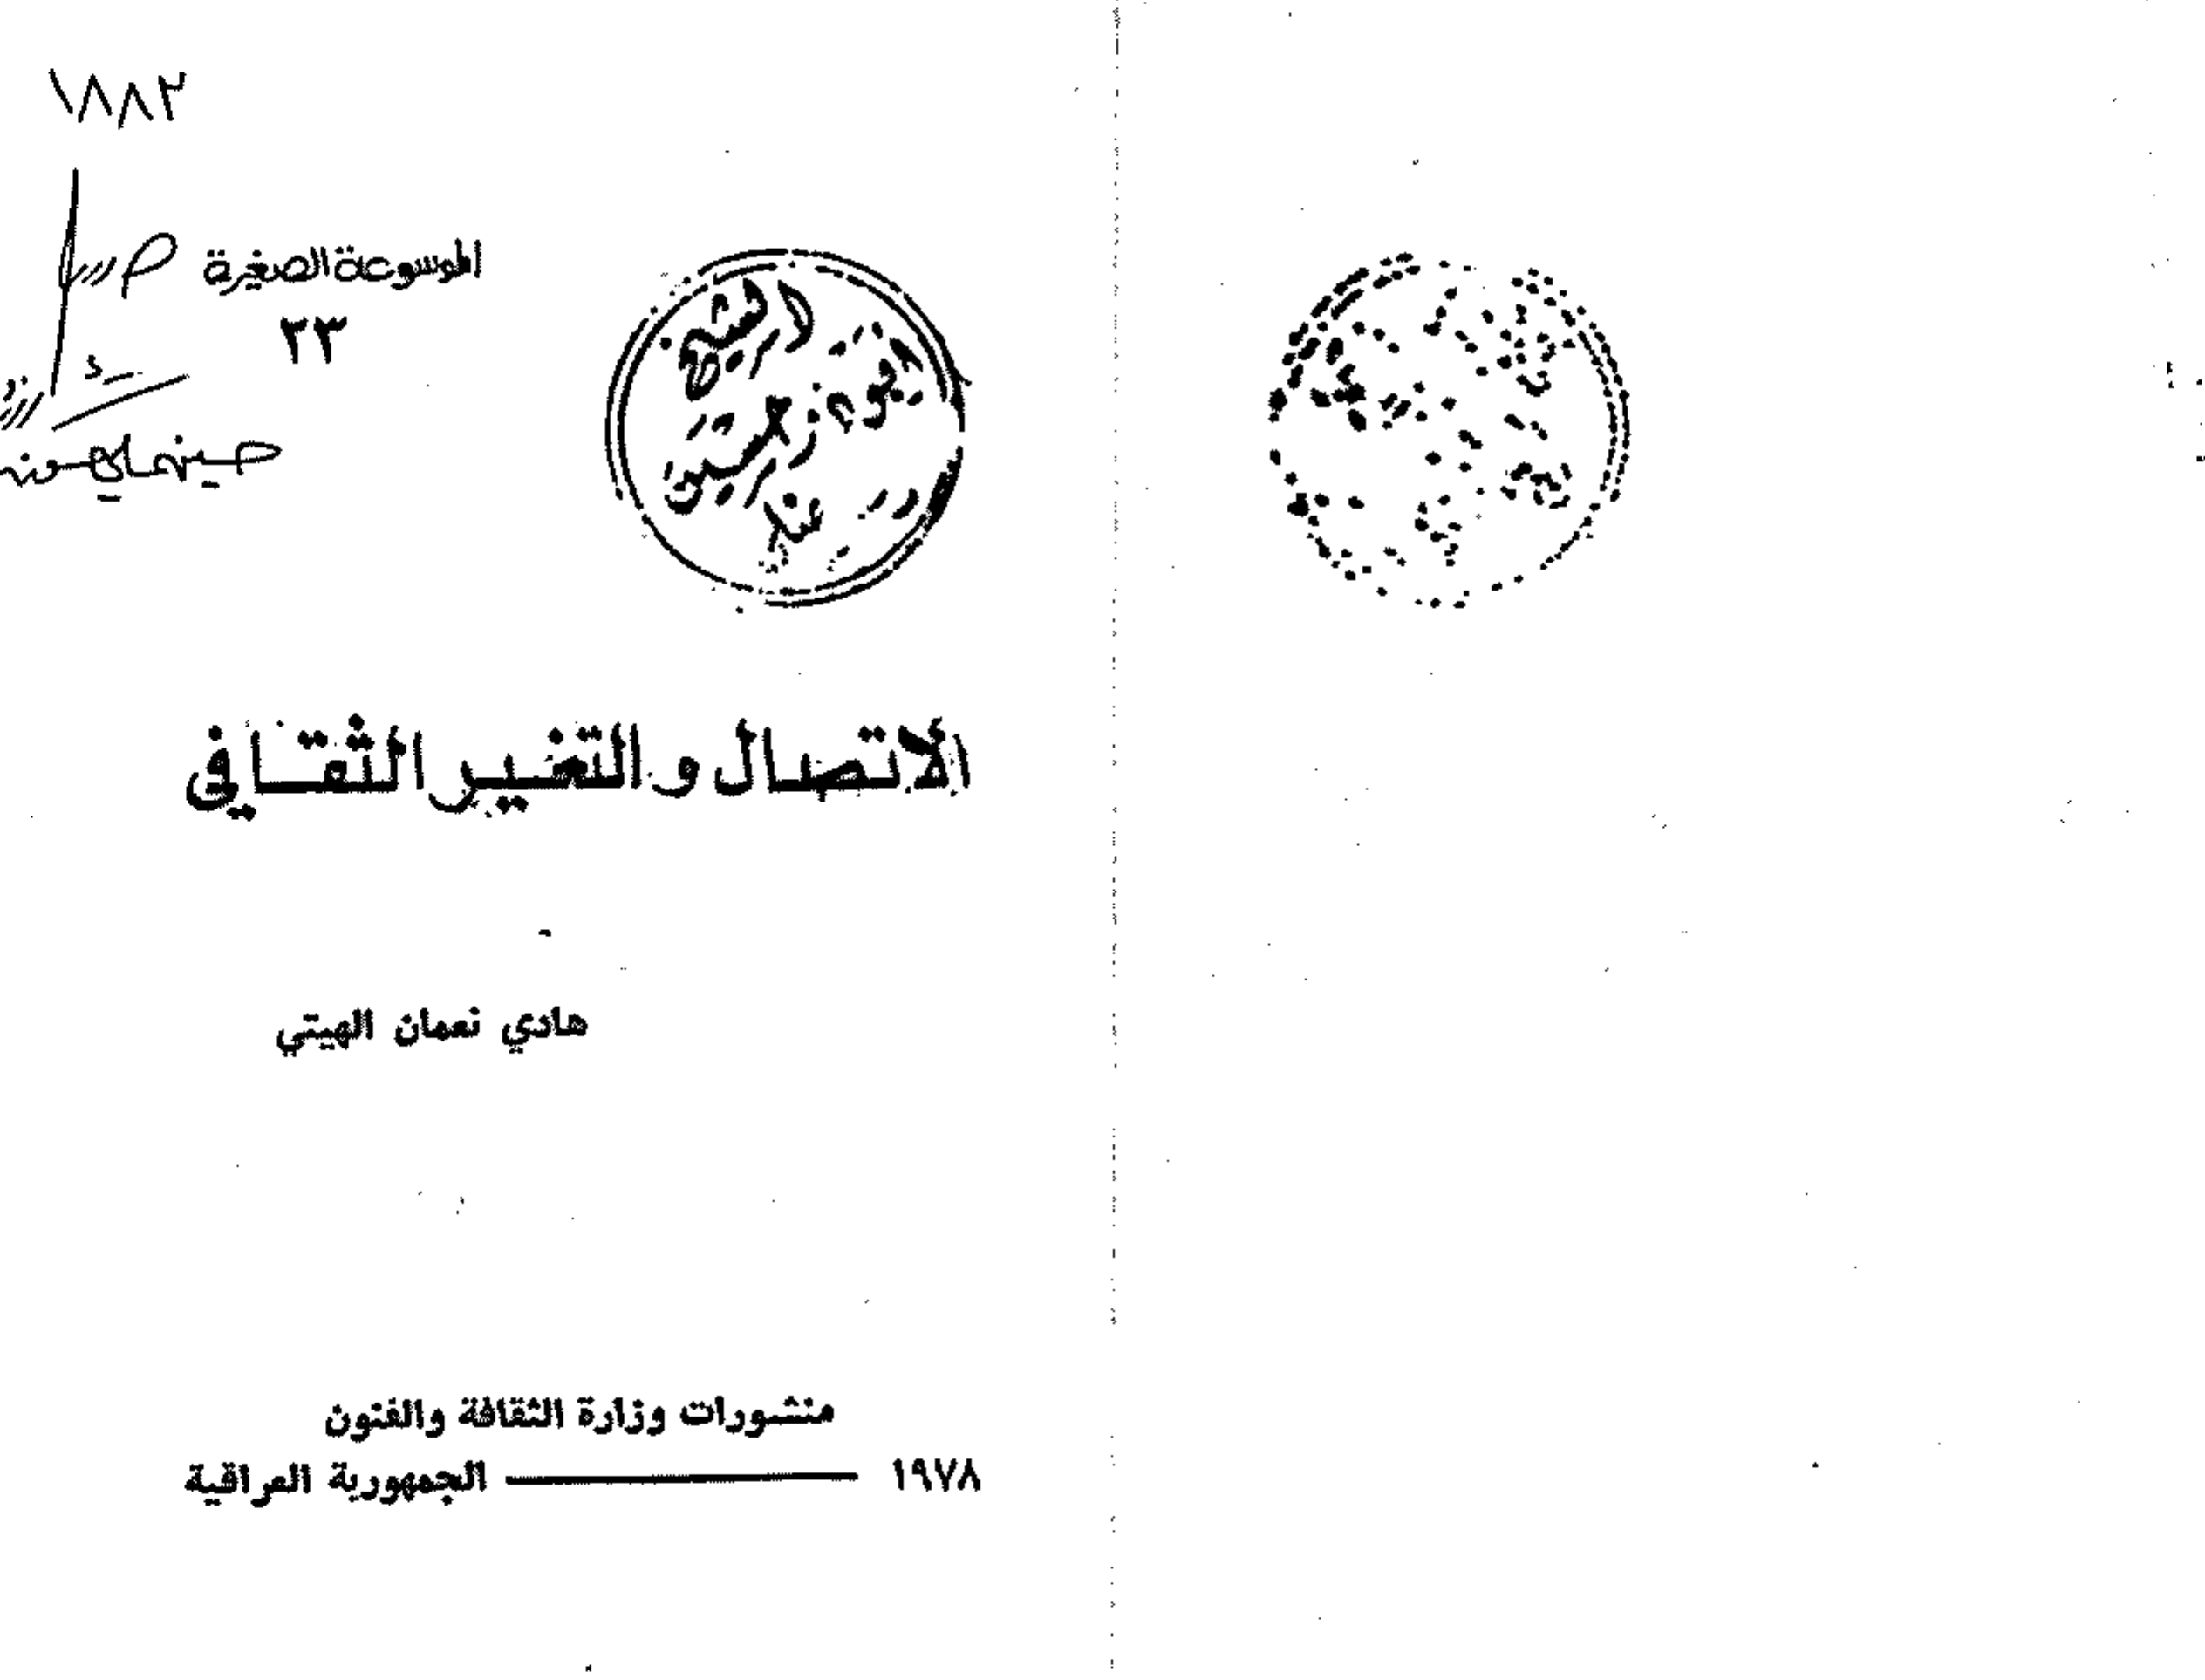 ١٨٨٣
الموسوعة الصغيرة
٢٣
الاتصال والتغيير الثقافي
هادي نعمان الهيتي
منشورات وزارة الثقافة والفنون
١٩٧٨ ـــــــ الجمهورية العراقية